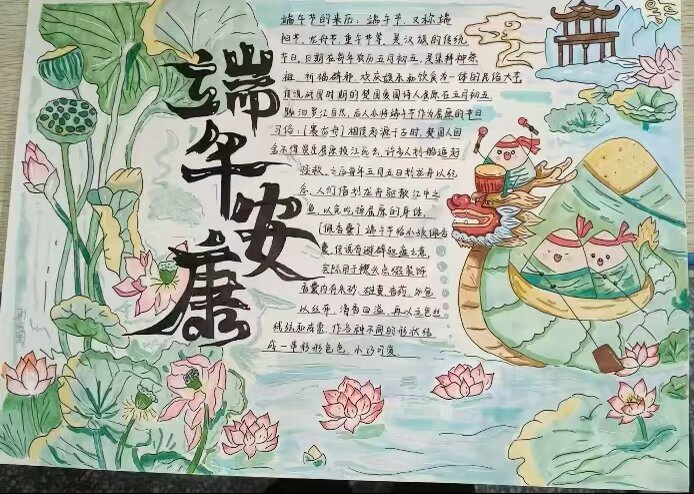 端午安康
端午节的来历：端午节，又称端
阳节、龙舟节、重午节等，是汉族的传统
节日，日期在每年农历五月初五，是集拜神祭
祖、祈福辟邪、欢庆娱乐和饮食为一体的民俗大节
传说战国时期的楚国爱国诗人屈原在五月初五
跳汨罗江自尽，后人亦将端午节作为屈原的节日
习俗：[赛龙舟] 相传起源于古时，楚国人因
舍不得贤臣屈原投江死去，许多人划船追赶
拯救，之后每年五月五日划龙舟以纪
念，人们借划龙舟驱散江中之
鱼，以免吃掉屈原的身体。
[佩香囊] 端午节给小孩佩香
囊，传说有避邪驱瘟之意，
实际用于襟头点缀装饰
香囊内有朱砂、雄黄、香药，外包
以丝布，清香四溢，再以五色丝
线弦扣成索，作各种不同的形状结
成一串形形色色，小巧可爱